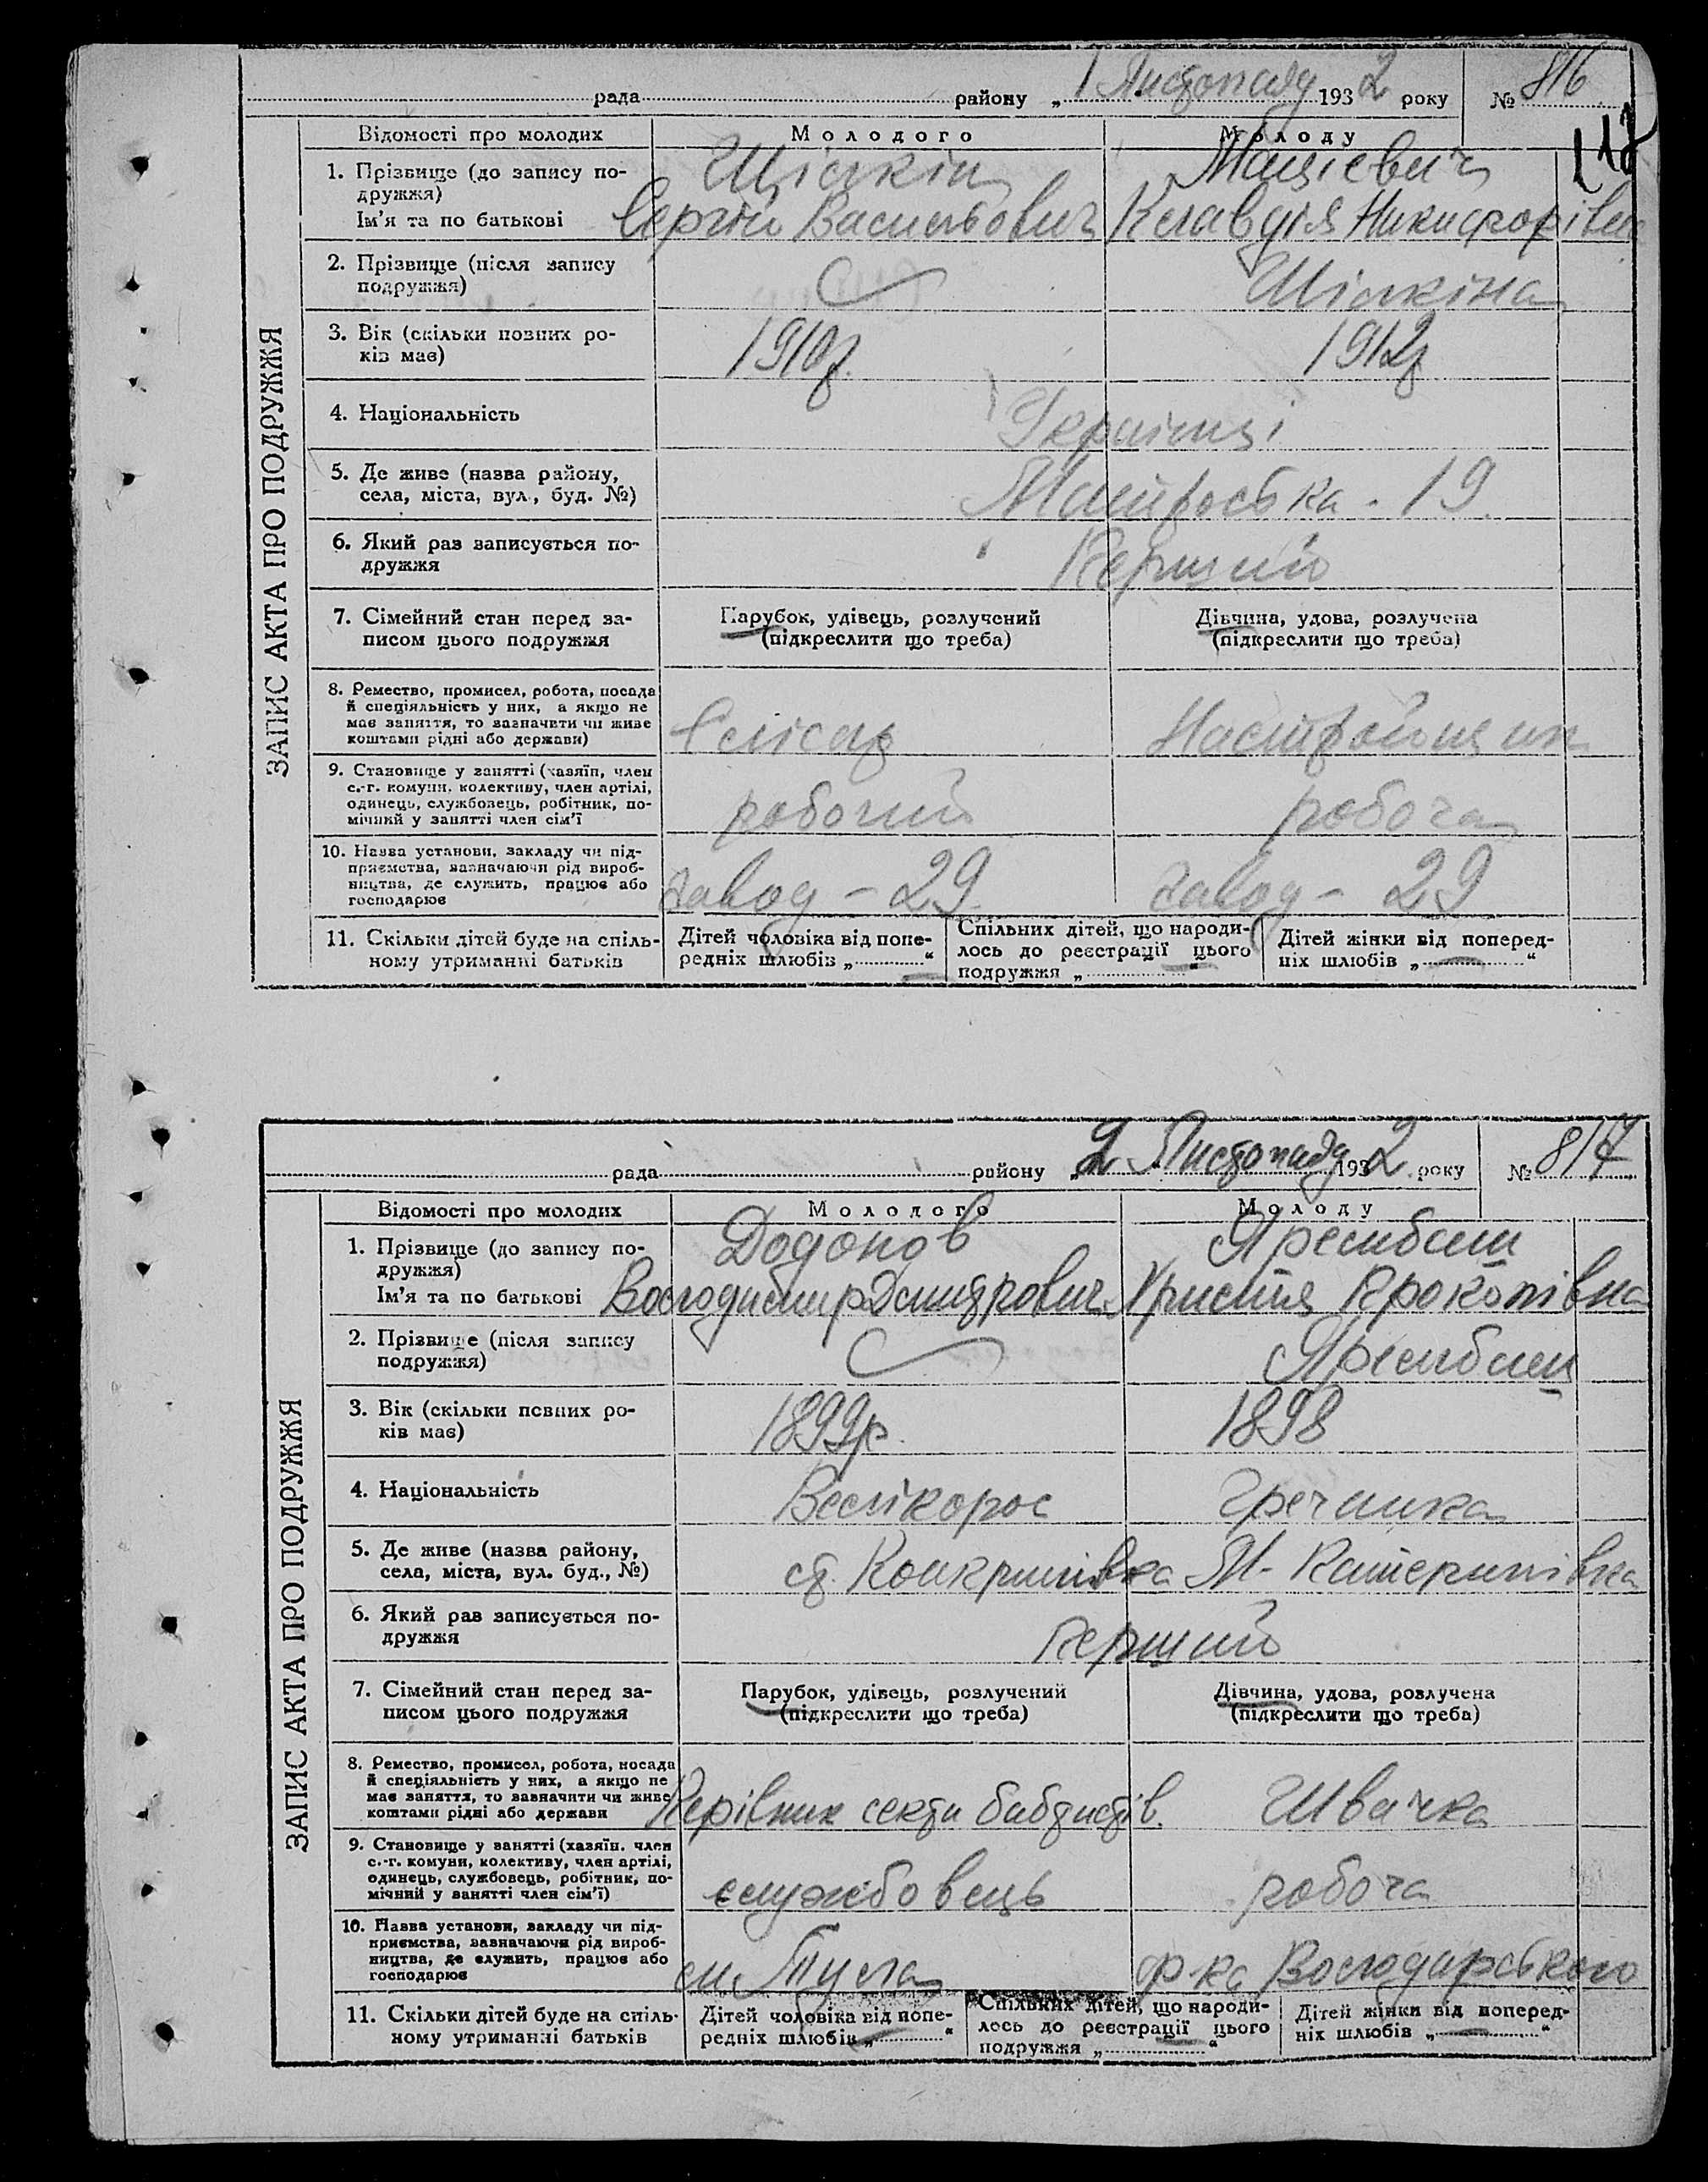 рада района „ 1 Листопаду 1932 року № 816
117
ЗАПИС АКТА ПРО ПОДРУЖЖЯ
Відомості про молодих Молодого Молоду
1. Прізвище (до запису по-
дружжя)
Ім'я та по батькові
Сергій Васильович Клавдія Никифорівна
2. Прізвище (після запису
подружжя)
3. Вік (скільки повних ро-
ків має)
1910р. 1912р
4. Національність
Українці
5. Де живе (назва району,
села, міста, вул., буд. №)
Матроська - 19.
6. Який раз записується по-
дружжя
Перший
7. Сімейний стан перед за-
писом цього подружжя
Парубок, удівець, розлучений
(підкреслити що треба)
Дівчина, удова, розлучена
(підкреслити що треба)
8. Ремество, промисел, робота, посада
й спеціяльність у них, а якщо не
має заняття, то зазначити чи живе
коштами рідні або держави)
Слісар
9. Становище у занятті (хазяїн, член
с.-г. комуни, колективу, член артілі,
одинець, службовець, робітник, по-
мічний у занятті член сім'ї
робочий робоча
10. Назва установи, закладу чи під-
приємства, зазначаючи рід вироб-
ництва, де служить, працює або
господарює
завод - 29. завод - 29
11. Скільки дітей буде на спіль-
ному утриманні батьків
Дітей чоловіка від попе-
редніх шлюбів „ “
Спільних дітей, що народи-
лось до реєстрації цього
подружжя „ “
Дітей жінки від поперед-
ніх шлюбів „ “
рада району „ 2 Листопаду 1932 року № 817
ЗАПИС АКТА ПРО ПОДРУЖЖЯ
Відомості про молодих Молодого Молоду
1. Прізвище (до запису по-
дружжя)
Ім'я та по батькові
Додонов
Володимир Дмитрович Христя Прокопівна
2. Прізвище (після запису
подружжя)
3. Вік (скільки повних ро-
ків має)
1899р. 1898
4. Національність
Велікорос Гречинка
5. Де живе (назва району,
села, міста, вул. буд., №)
М- Катеринівка
6. Який раз записується по-
дружжя
Перший
7. Сімейний стан перед за-
писом цього подружжя
Парубок, удівець, розлучений
(підкреслити що треба)
Дівчина, удова, розлучена
(підкреслити що треба)
8. Ремество, промисел, робота, посада
й спеціяльність у них, а якщо не
має заняття, то зазначити чи живе
коштами рідні або держави
Керівник секти бабтистів. Швачка
9. Становище у занятті (хазяїн, член
с.-г. комуни, колективу, член артілі,
одинець, службовець, робітник, по-
мічний у занятті член сім'ї)
службовець робоча
10. Назва установи, закладу чи під-
приємства, зазначаючи рід вироб-
ництва, де служить, працює або
господарює
Тула ф-ка Володарського
11. Скільки дітей буде на спіль-
ному утриманні батьків
Дітей чоловіка від попе-
редніх шлюбів „ “
Спільних дітей, що народи-
лось до реєстрації цього
подружжя „ “
Дітей жінки від поперед-
ніх шлюбів „ “